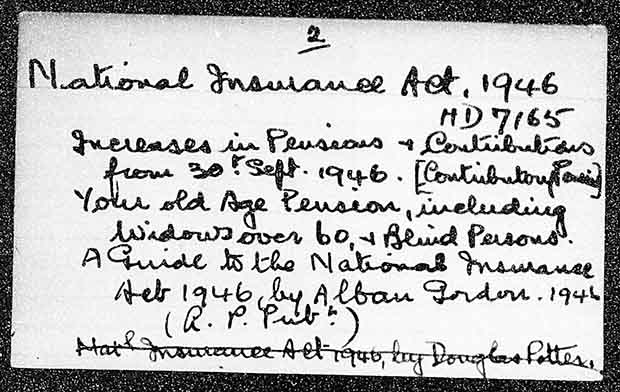 2
National Insurance Act, 1946
HD 7165
Increases in Pensions & Contributions
from 30th Sept. 1946. [Contributory Pensions]
Your old Age Pension, including
Widows over 60, & Blind Persons.
A Guide to the National Insurance
Act 1946, by Alban Gordon. 1946
(A. P. Pubn)
Natl Insurance Act 1946, by Douglas Potter.